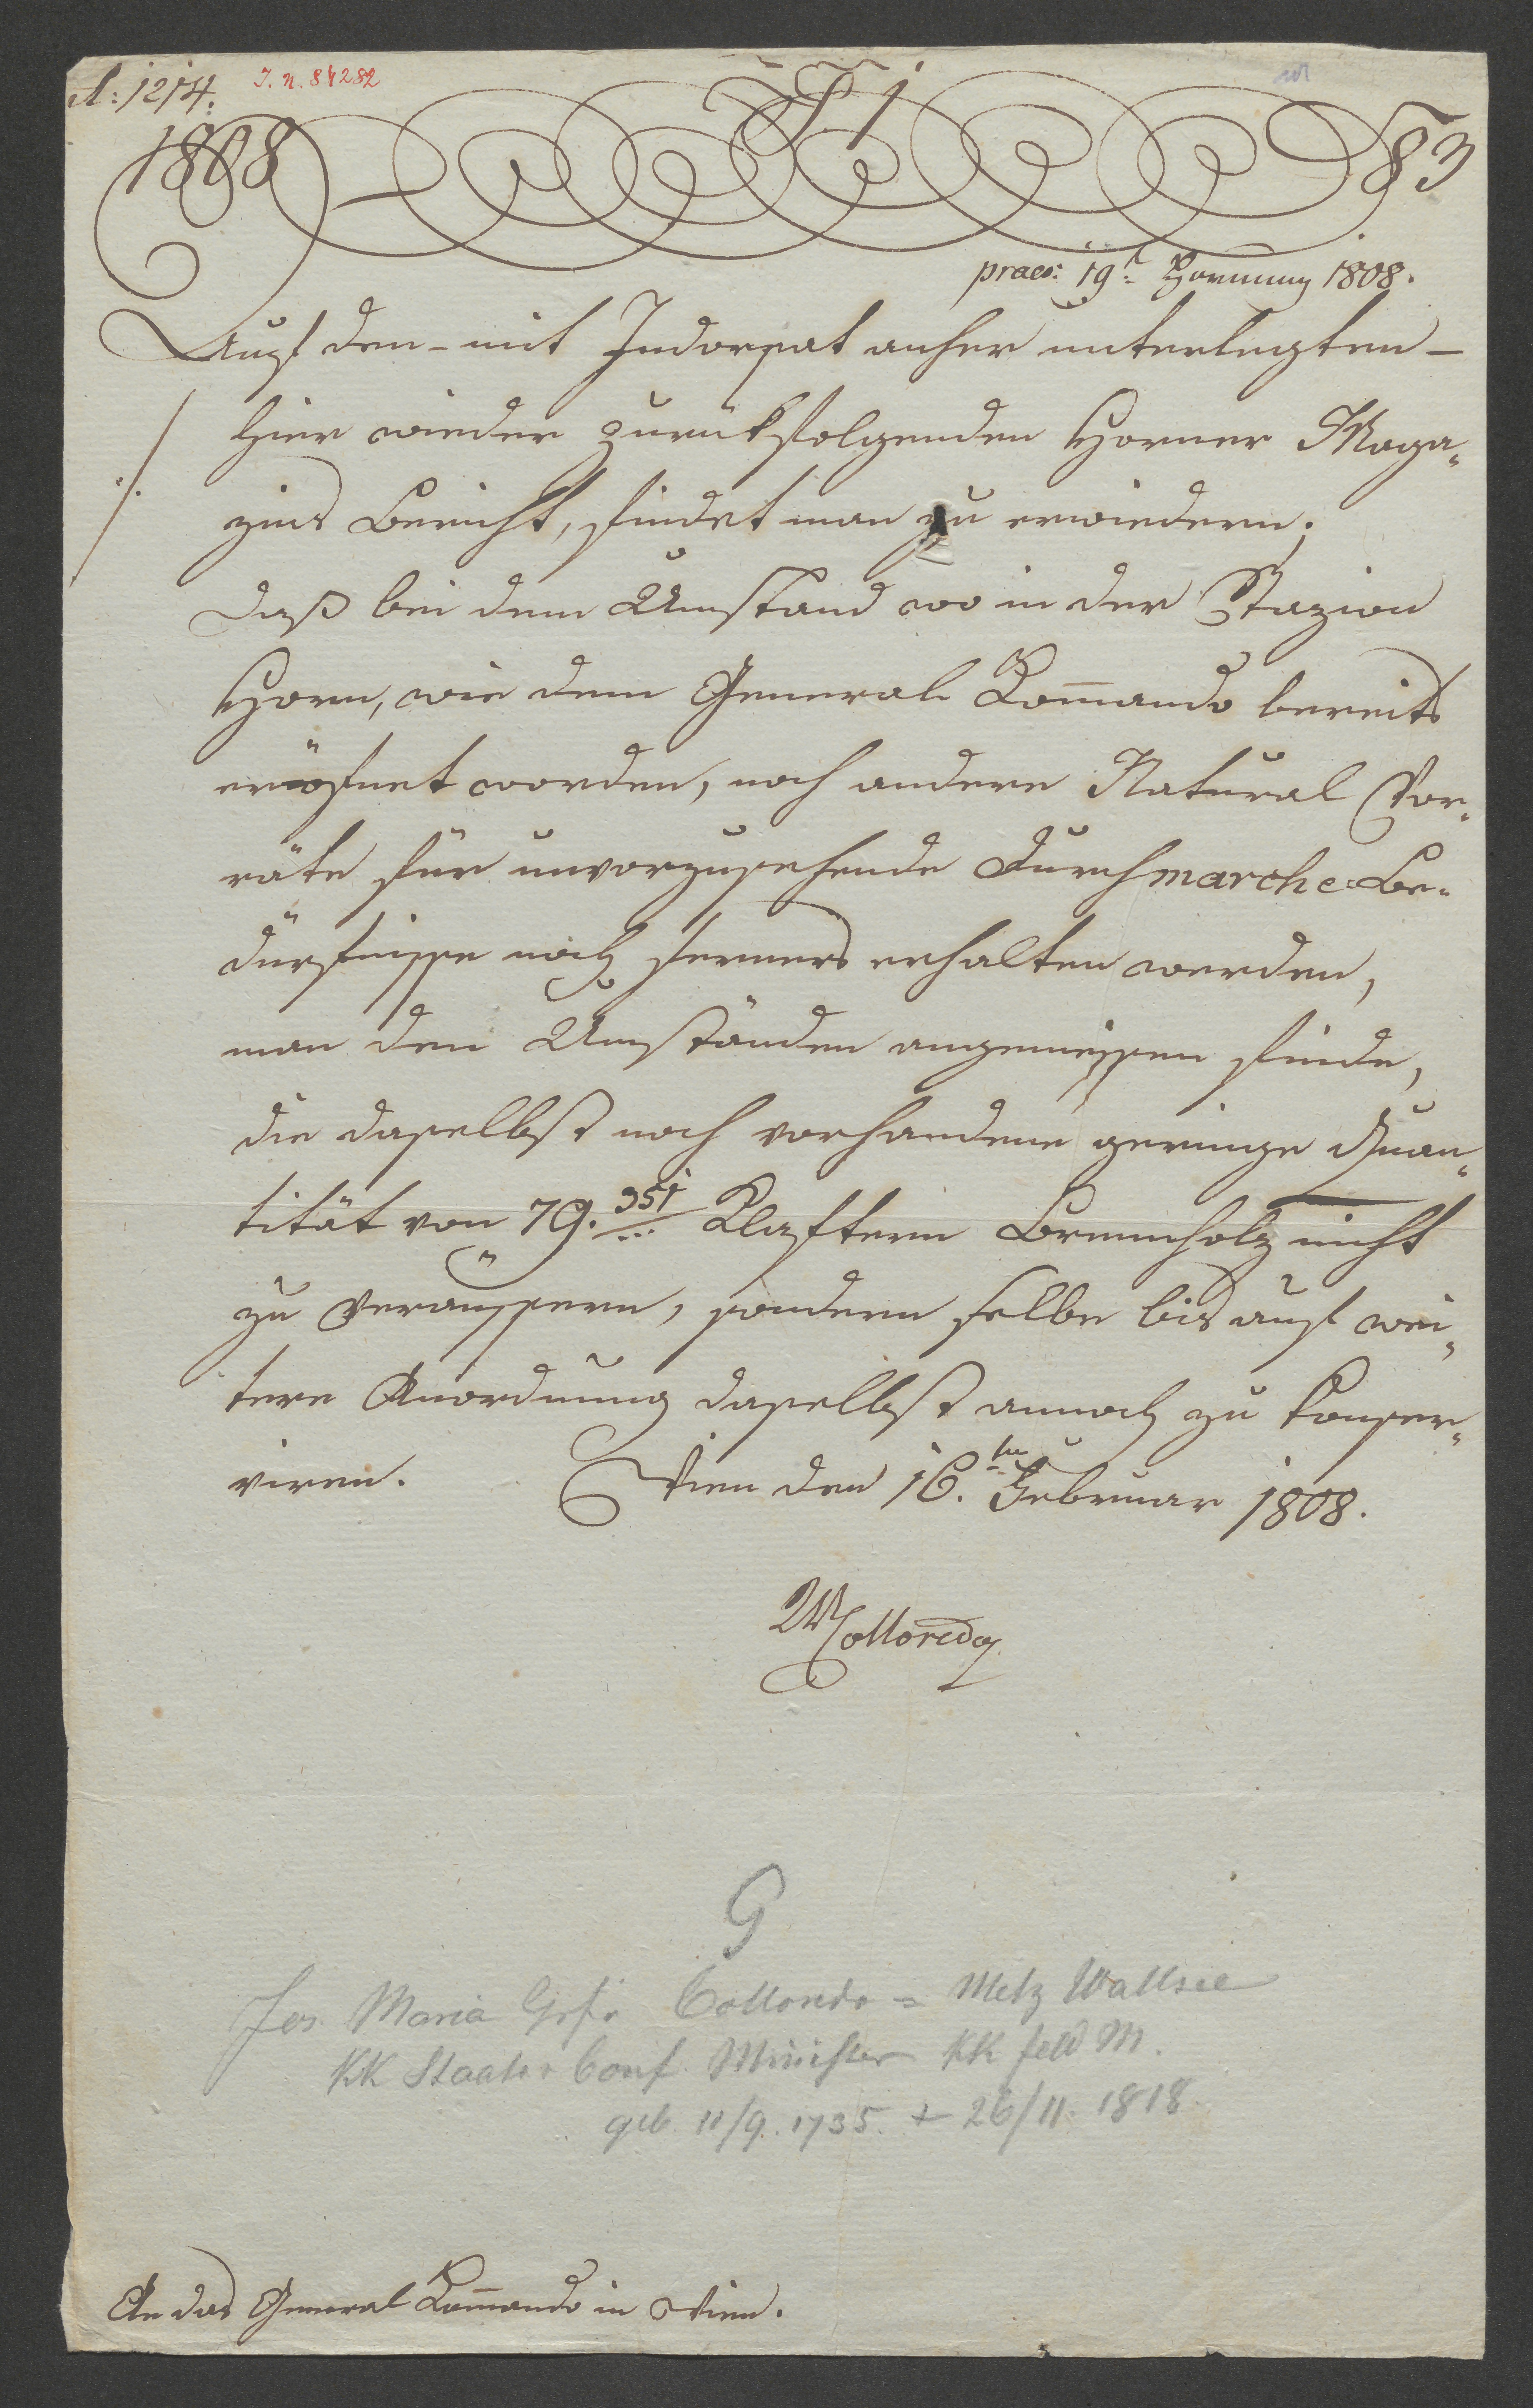 A: 1214.
I. N. 84282
1808
83
praes: 19t Hornung 1808.
Auf den - mit Indorsat anher unterlegten -
./. hier wieder zurükfolgenden Horner Maga-
zins Bericht, findet man zu erwiedern;
daß bei dem Umstand wo in der Stazion
Horn, wie dem General Kom̄ando bereits
eröfnet worden, noch andere Natural Vor-
räte für unvorzusehende Durchmarche-Be-
dürfnisse noch ferners erhalten werden,
man den Umständen angemessen finde,
die daselbst noch vorhandene geringe Quan-
tität von 79. 351/... Klaftern Brennholz nicht
zu veräussern, sondern selbe bis auf wei-
tere Anordnung daselbst annoch zu konser-
viren. Wien den 16.ten Februar 1808.
WColloredo
G
Jos. Maria Grf. Colloredo = Metz Wallsee
KK Staats Conf. Minister KK feld M.
geb. 11/9. 1735. + 26/11. 1818.
An das General Kom̄ando in Wien.